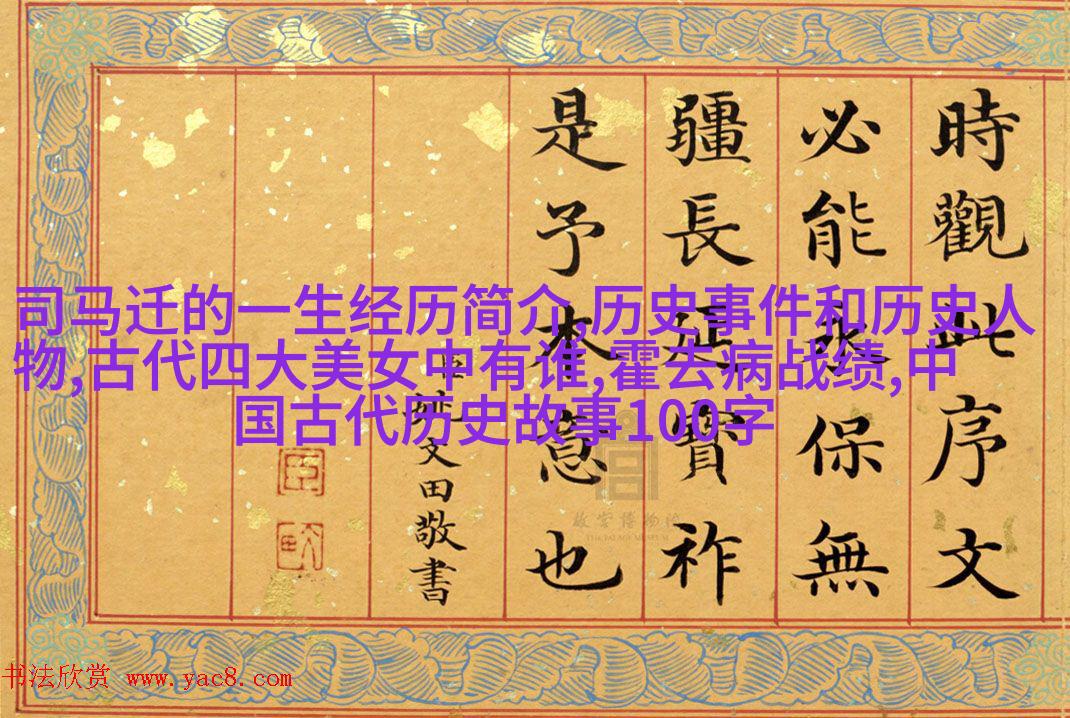 時觀此序文
必能保無
疆長延寶祚
是予本意也
臣姚文田敬書
司马迁的一生经历简介,历史事件和历史人
物,古代四大美女中有谁,霍去病战绩,中
国古代历史故事100字
故宫博物院
THE PALACE MUSEUM
书法欣赏 www.yac8.com